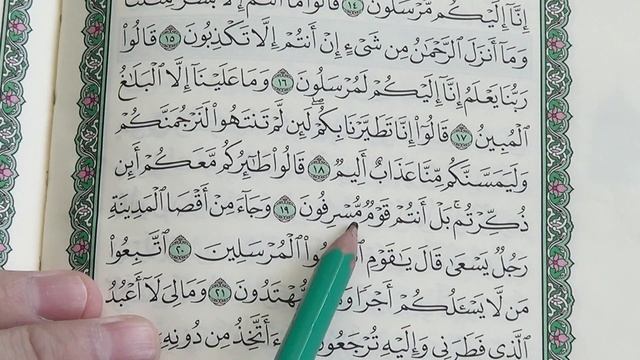 إِنَّآ إِلَيْكُم مُّرْسَلُونَ ١٤ قَالُوا۟ مَآ أَنتُمْ إِلَّا بَشَرٌ مِّثْلُنَا
وَمَآ أَنزَلَ ٱلرَّحْمَٰنُ مِن شَىْءٍ إِنْ أَنتُمْ إِلَّا تَكْذِبُونَ ١٥ قَالُوا۟
رَبُّنَا يَعْلَمُ إِنَّآ إِلَيْكُمْ لَمُرْسَلُونَ ١٦ وَمَا عَلَيْنَآ إِلَّا ٱلْبَلَٰغُ
ٱلْمُبِينُ ١٧ قَالُوٓا۟ إِنَّا تَطَيَّرْنَا بِكُمْ ۖ لَئِن لَّمْ تَنتَهُوا۟ لَنَرْجُمَنَّكُمْ
وَلَيَمَسَّنَّكُم مِّنَّا عَذَابٌ أَلِيمٌ ١٨ قَالُوا۟ طَٰٓئِرُكُم مَّعَكُمْ ۚ أَئِن
ذُكِّرْتُم ۚ بَلْ أَنتُمْ قَوْمٌ مُّسْرِفُونَ ١٩ وَجَآءَ مِنْ أَقْصَا ٱلْمَدِينَةِ
رَجُلٌ يَسْعَىٰ قَالَ يَٰقَوْمِ ٱلْمُرْسَلِينَ ٢٠ ٱتَّبِعُوا۟
مَن لَّا يَسْـَٔلُكُمْ أَجْرًا ٢١ وَمَا لِىَ لَآ أَعْبُدُ
ٱلَّذِى فَطَرَنِى وَإِلَيْهِ تُرْجَعُونَ أَتَّخِذُ مِن دُونِهِۦٓ